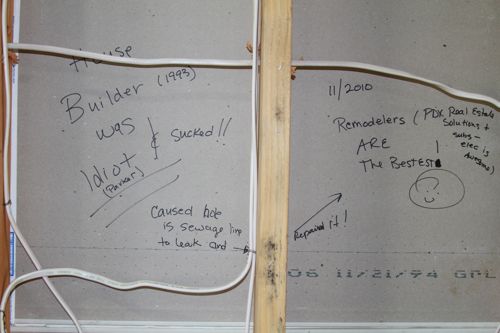 House
Builder (1993)
was
Idiot
(Parker)
& Sucked!!
Caused hole
is sewage line
to leak and →
11/2010
Remodelers (PDX Real Estate
Solutions +
subs -
elec is
Awesome)
ARE
The Bestest!
Repaired it!
06 11/21/94 GPL